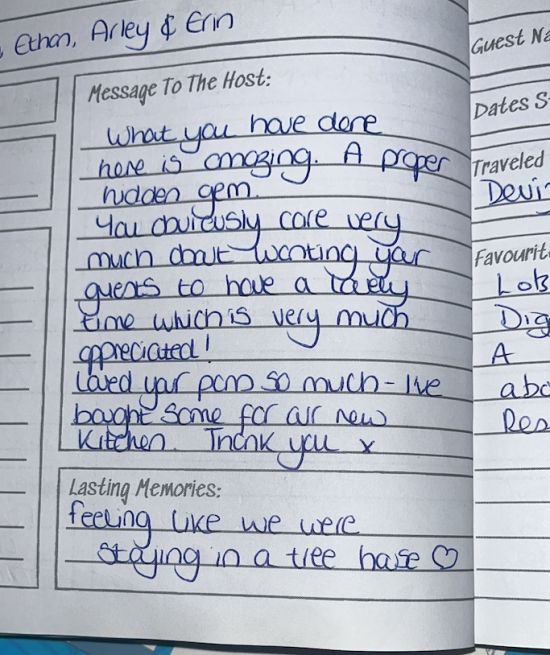 Ethan, Arley & Erin
Message To The Host:
What you have done
here is amazing. A proper
hidden gem.
You obviously care very
much about wanting your
guests to have a lovely
time which is very much
appreciated!
Loved your pans so much - I've
bought some for our new
kitchen. Thank you x
Lasting Memories:
feeling like we were
staying in a tree house ♡
Guest Na
Dates S
Traveled
Devi
Favourit
Lob
Dig
A
abo